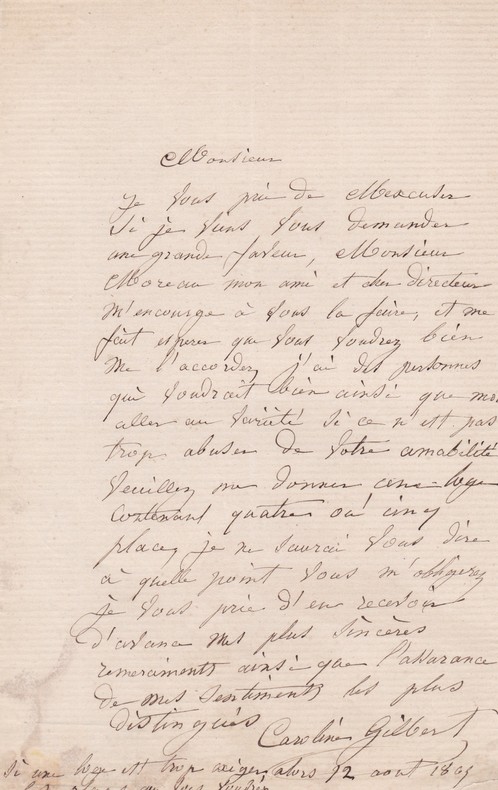 Monsieur
Je vous prie de M'excuser
Si je viens vous demander
une grande faveur, Monsieur
Moreau mon ami et cher directeur
m'encourage à vous la faire, et me
fait esperer que vous voudrez bien
me l'accordez j'ai des personnes
qui voudrait bien ainsi que moi
aller au variété si ce n'est pas
trop abuser de votre amabilité
veuillez me donner une loge
contenant quatres ou cinq
places je ne saurai vous dire
à quelle point vous m'obligerez
je vous prie d'en recevoir
d'avance mes plus sincères
remerciments ainsi que l'assurance
de mes sentiments les plus
distingués
Caroline Gilbert
Si une loge est trop exiger alors 12 aout
places que vous